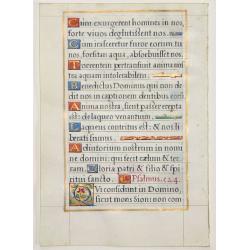 Cum exurgerent homines in nos,
forte vivos deglutissent nos.
Cum irasceretur furor eorum in
nos, forsitan aqua, absorbuisset nos.
Torrentem pertransivit anima nos
tra aquam intolerabilem.
Benedictus Dominus qui non de
dit nos in captionem dentibus eoru.
Anima nostra, sicut passer erepta
est: de laqueo venantium.
Laqueus contritus est: & nos li
berati sumus.
Adiutorium nostrum in nomine
domini: qui fecit cælum & ter
ram. Gloria patri & filio & spi
ritui sancto. Psalmus. 124.
Qui confidunt in Domino,
sicut mons Sion: non com